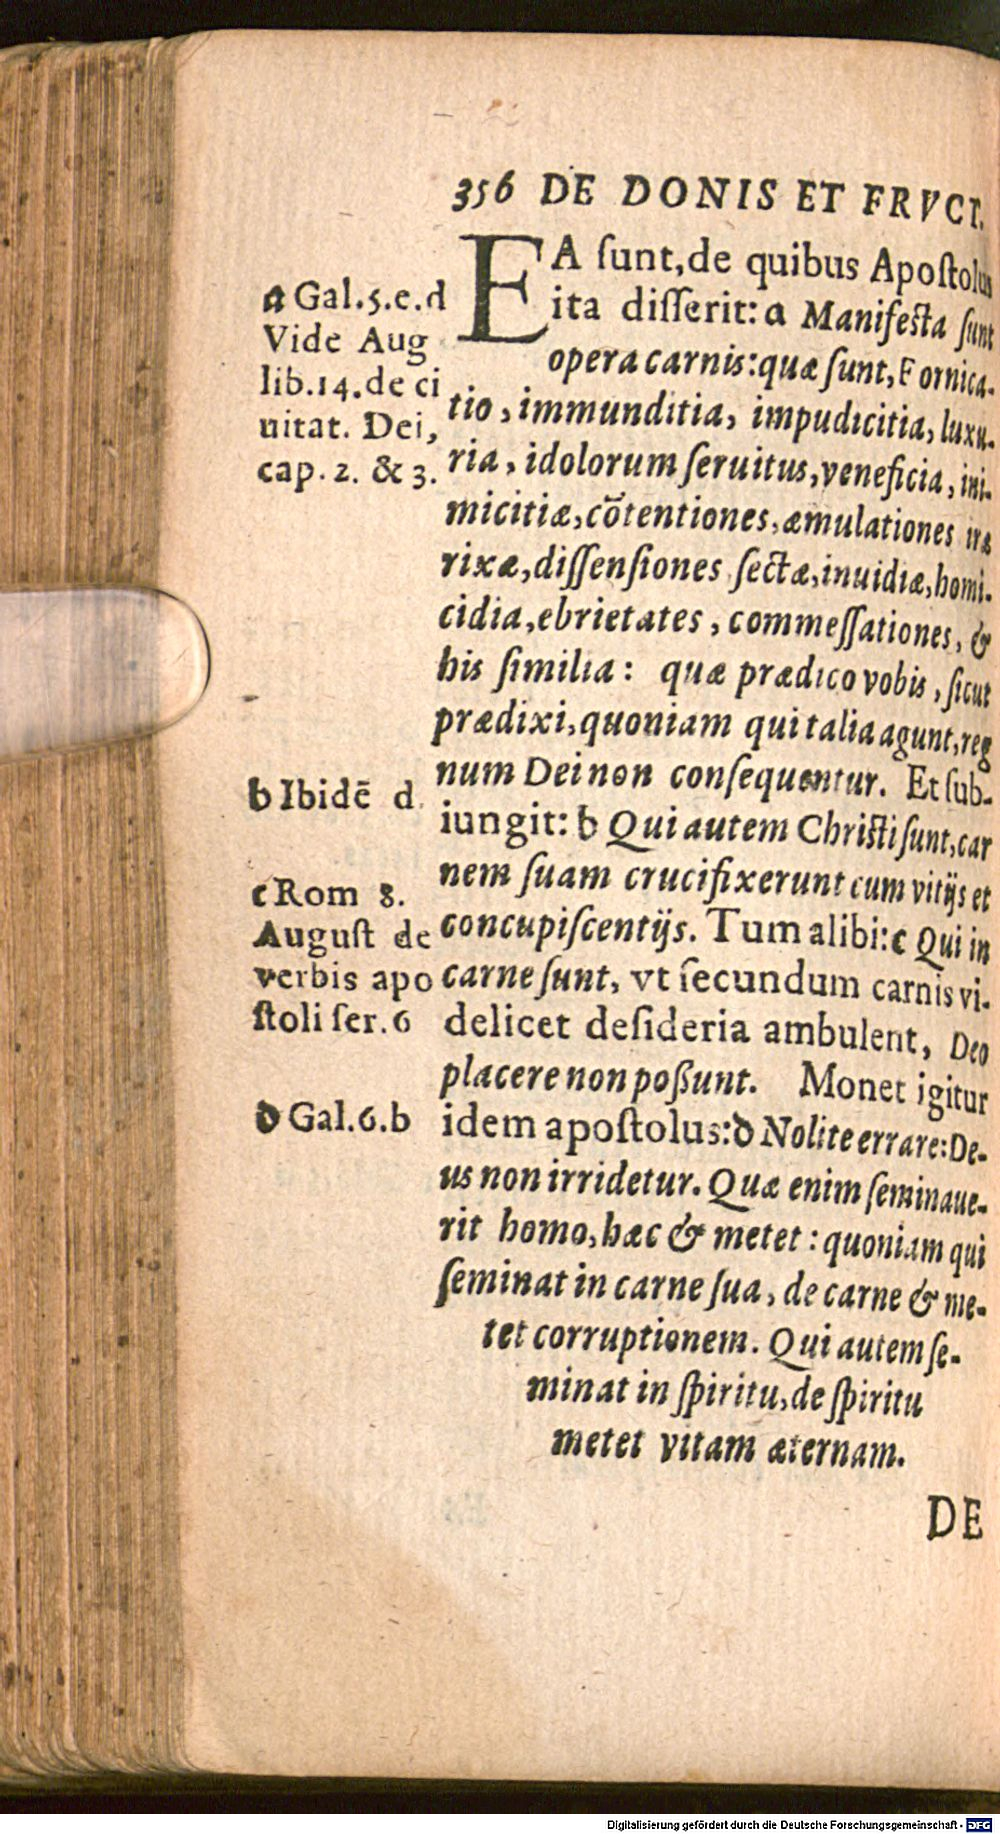 356 DE DONIS ET FRVCT.
EA ſunt, de quibus Apoſtolus
ita diſſerit: a Manifeſta ſunt
opera carnis: quæ ſunt, Fornica-
tio, immunditia, impudicitia, luxu-
ria, idolorum ſeruitus, veneficia, ini-
micitiæ, cõtentiones, æmulationes iræ
rixæ, diſſenſiones ſectæ, inuidiæ, homi-
cidia, ebrietates, commeſſationes, &
his ſimilia: quæ prædico vobis, ſicut
prædixi, quoniam qui talia agunt, reg
num Dei non conſequentur. Et ſub-
iungit: b Qui autem Chriſti ſunt, car
nem ſuam crucifixerunt cum vitijs et
concupiſcentijs. Tum alibi: c Qui in
carne ſunt, vt ſecundum carnis vi-
delicet deſideria ambulent, Deo
placere non poßunt. Monet igitur
idem apoſtolus: d Nolite errare: De-
us non irridetur. Quæ enim ſeminaue-
rit homo, hæc & metet: quoniam qui
ſeminat in carne ſua, de carne & me-
tet corruptionem. Qui autem ſe-
minat in ſpiritu, de ſpiritu
metet vitam æternam.
DE
a Gal.5.e.d
Vide Aug
lib.14.de ci
uitat. Dei,
cap.2. & 3.
b Ibidē d.
c Rom 8.
Auguſt de
verbis apo
ſtoli ſer.6
d Gal.6.b
Digitalisierung gefördert durch die Deutsche Forschungsgemeinschaft - DFG